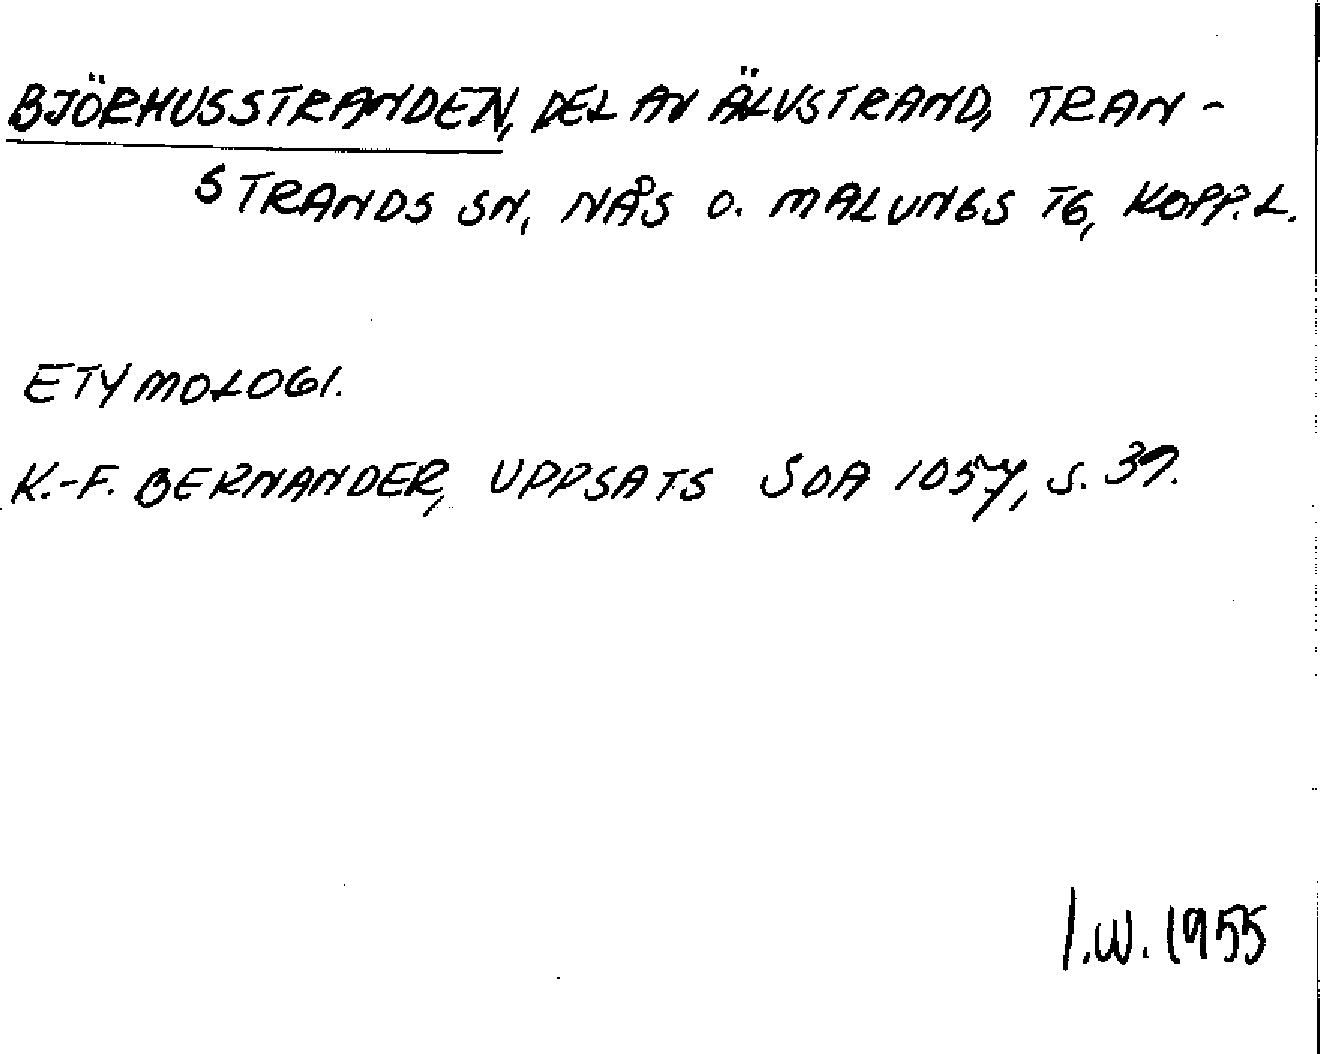 BJÖRHUSSTRANDEN, DEL AV ÄLVSTRAND, TRAN-
STRANDS SN, NÅS O. MALUNGS TG, KOPP. L.
ETYMOLOGI.
K.-F. BERNANDER, UPPSATS SOA 1057, S. 37.
I.W. 1955